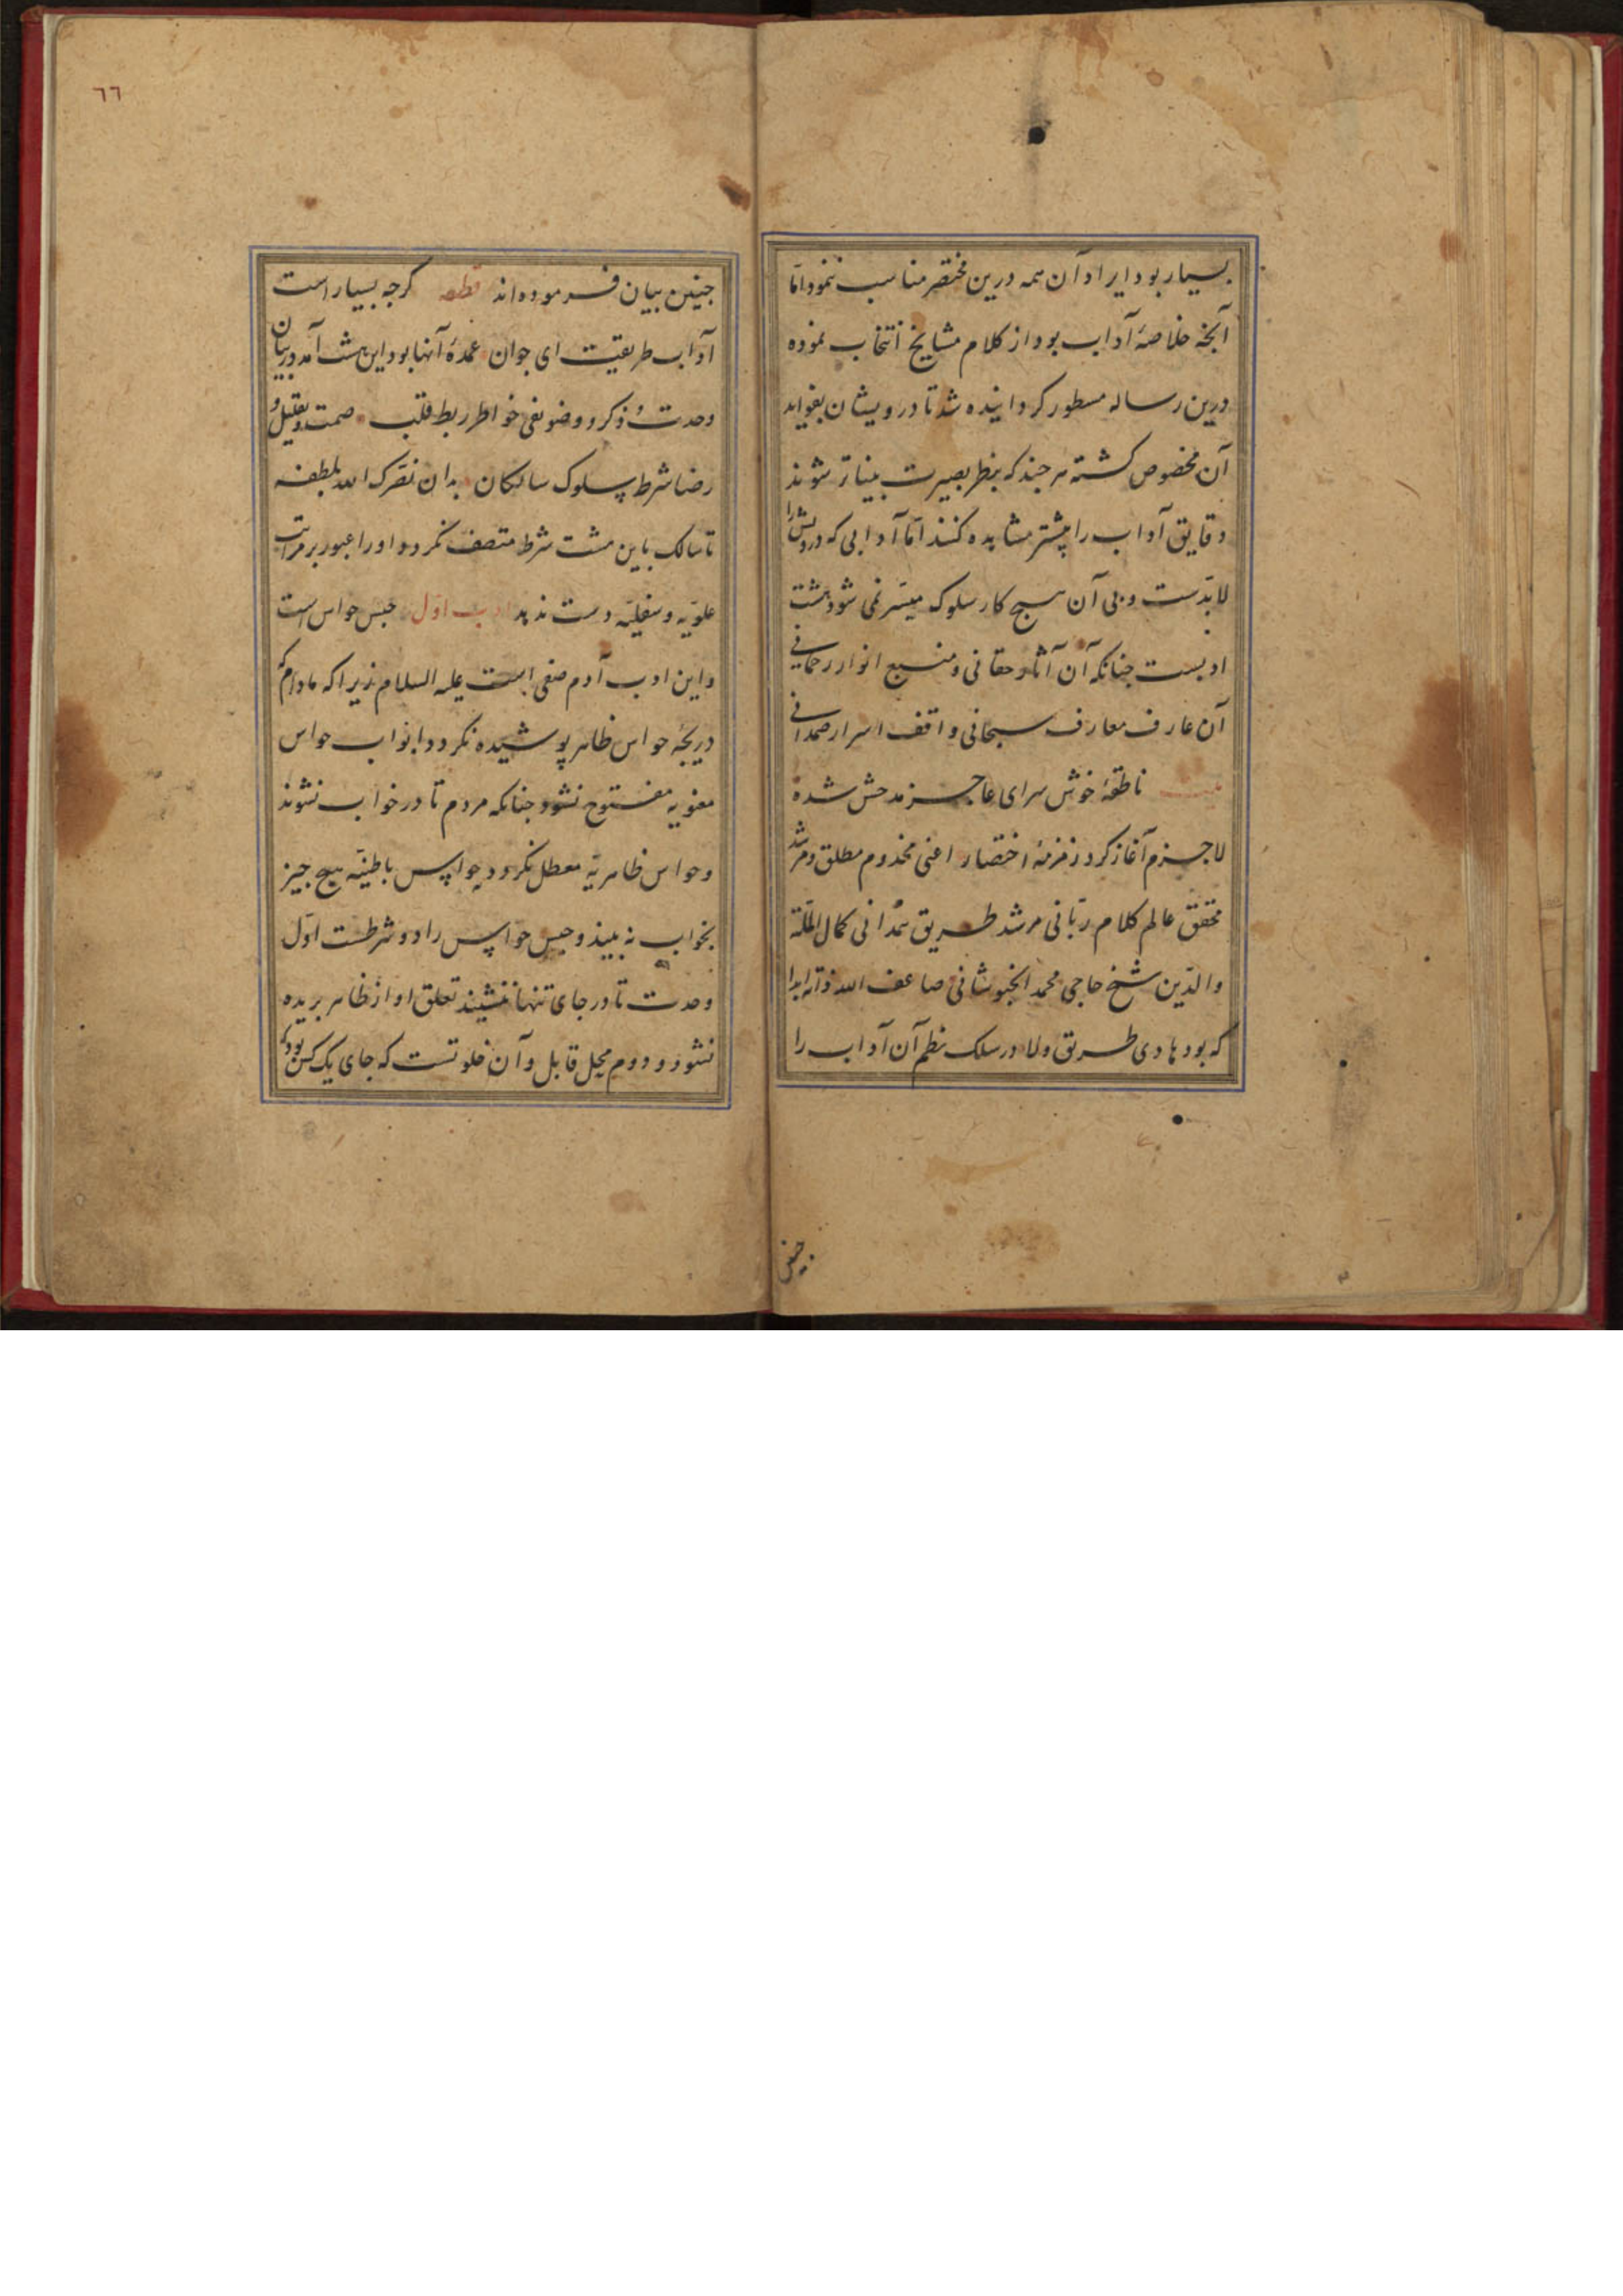 بسیار بود ایراد آن همه درین مختصر مناسب ننمود امّا
آنجه خلاصهٔ آداب بود از کلام مشایخ انتخاب نموده
درین رساله مسطور کردانیده شد تا درویشان بفواید
آن مخصوص کشته هر جند که بنظر بصیرت بیناتر شوند
دقایق آداب را بیشتر مشاهده کنند امّا آدابی که درویش را
لابدّست و بی آن هیج کار سلوک میسّر نمی شود هشت
ادبست جنانکه آن آثار حقانی و منبع انوار رحمانی
آن عارف معارف سبحانی واقف اسرار صمدانی
بیت ناطقهٔ خوش سرای عاجز مدحش شده
لاجرم آغاز کرد زمزمهٔ اختصار اعنی مخدوم مطلق و مرشد
محقق عالم کلام ربّانی مرشد طریق همدانی کمال الملّة
والدّین شیخ حاجی محمد الخبوشانی ضاعف الله ذاته ابدا
که بود هادی طریق ولا در سلک نظم آن آداب را
جنین
٦٦
جنین بیان فرموده‌اند قطعه کرجه بسیار است
آداب طریقت ای جوان عمدهٔ آنها بود این هشت آمد در بیان
وحدت و ذکر و وضو نفی خواطر ربط قلب صمت و تقلیل و
رضا شرط سلوک سالکان بدان نصّرک الله بلطفه
تا سالک باین هشت شرط متصف نکردد او را عبور بر مراتب
علویّه و سفلیّه دست ندهد ادب اوّل حبس حواس است
و این ادب آدم صفی است علیه السلام زیرا که مادام که
دریجهٔ حواس ظاهر پوشیده نکردد ابواب حواس
معنویه مفتوح نشود جنانکه مردم تا در خواب نشوند
و حواس ظاهریّه معطل نکردد بحواس باطنیّه هیج جیز
بخواب نه بیند و حبس حواس را دو شرطست اوّل
وحدت تا در جای تنها ننشیند تعلق او از ظاهر بریده
نشود و دوم محل قابل و آن خلوتست که جای یک کس بود که